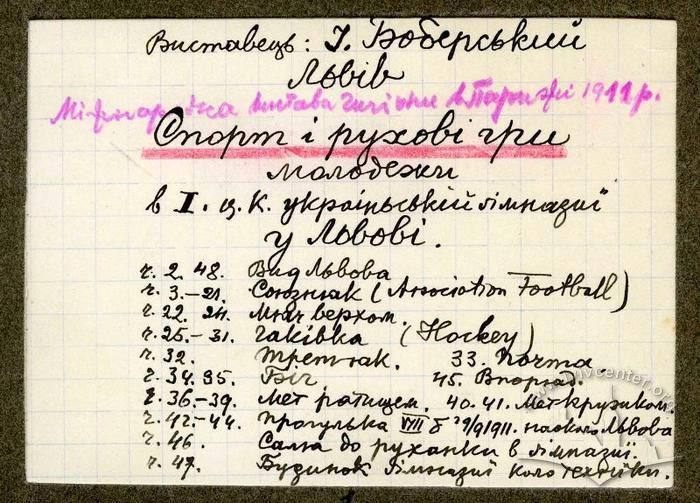 Виставець: І. Боберський
Львів
Міжнародна вистава гигієни в Парижі 1911 р.
Спорт і рухові гри
молодежи
в І. ц. к. українській гімназиї
у Львові.
ч. 2. 48. Вид Львова
ч. 3.-21. Союзняк (Association Football)
ч. 22. 24. Мяч верхом.
ч. 25.-31. Гаківка (Hockey)
ч. 32. Третяк. 33. Почта
ч. 34. 35. Біг 45. Впоряд.
ч. 36.-39. Мет ратищем. 40. 41. Мет кружком.
ч. 42.-44. Прогулька VIII б 29/9 1911. наоколо Львова
ч. 46. Саля до руханки в гімназиї.
ч. 47. Будинок гімназиї коло техніки.